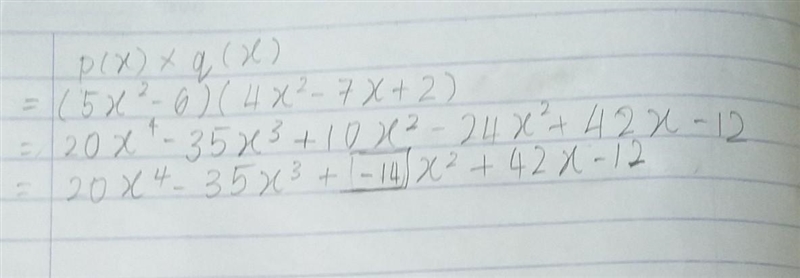 p(x) × q(x)
= (5x² - 6)(4x² - 7x + 2)
= 20x⁴ - 35x³ + 10x² - 24x² + 42x - 12
= 20x⁴ - 35x³ + -14 x² + 42x - 12